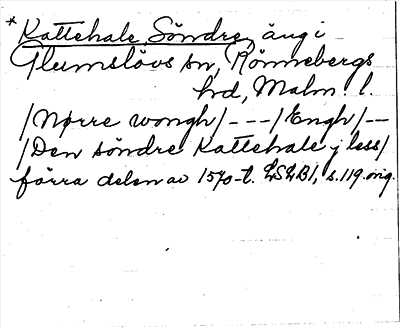 * Kattehale, Söndre, äng i
Glumslövs sn, Rönnebergs
hrd, Malm. l.
/Nørre wongh/---/Engh/--
/Den söndre Kattehale j less/
förra delen av 1570-t. LSLB1, s. 119. orig.